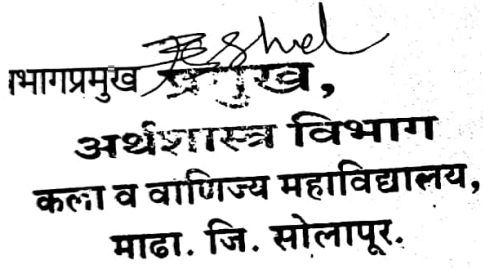 भागप्रमुख प्रमुख,
अर्थशास्त्र विभाग
कला व वाणिज्य महाविद्यालय,
माढा. जि. सोलापूर.